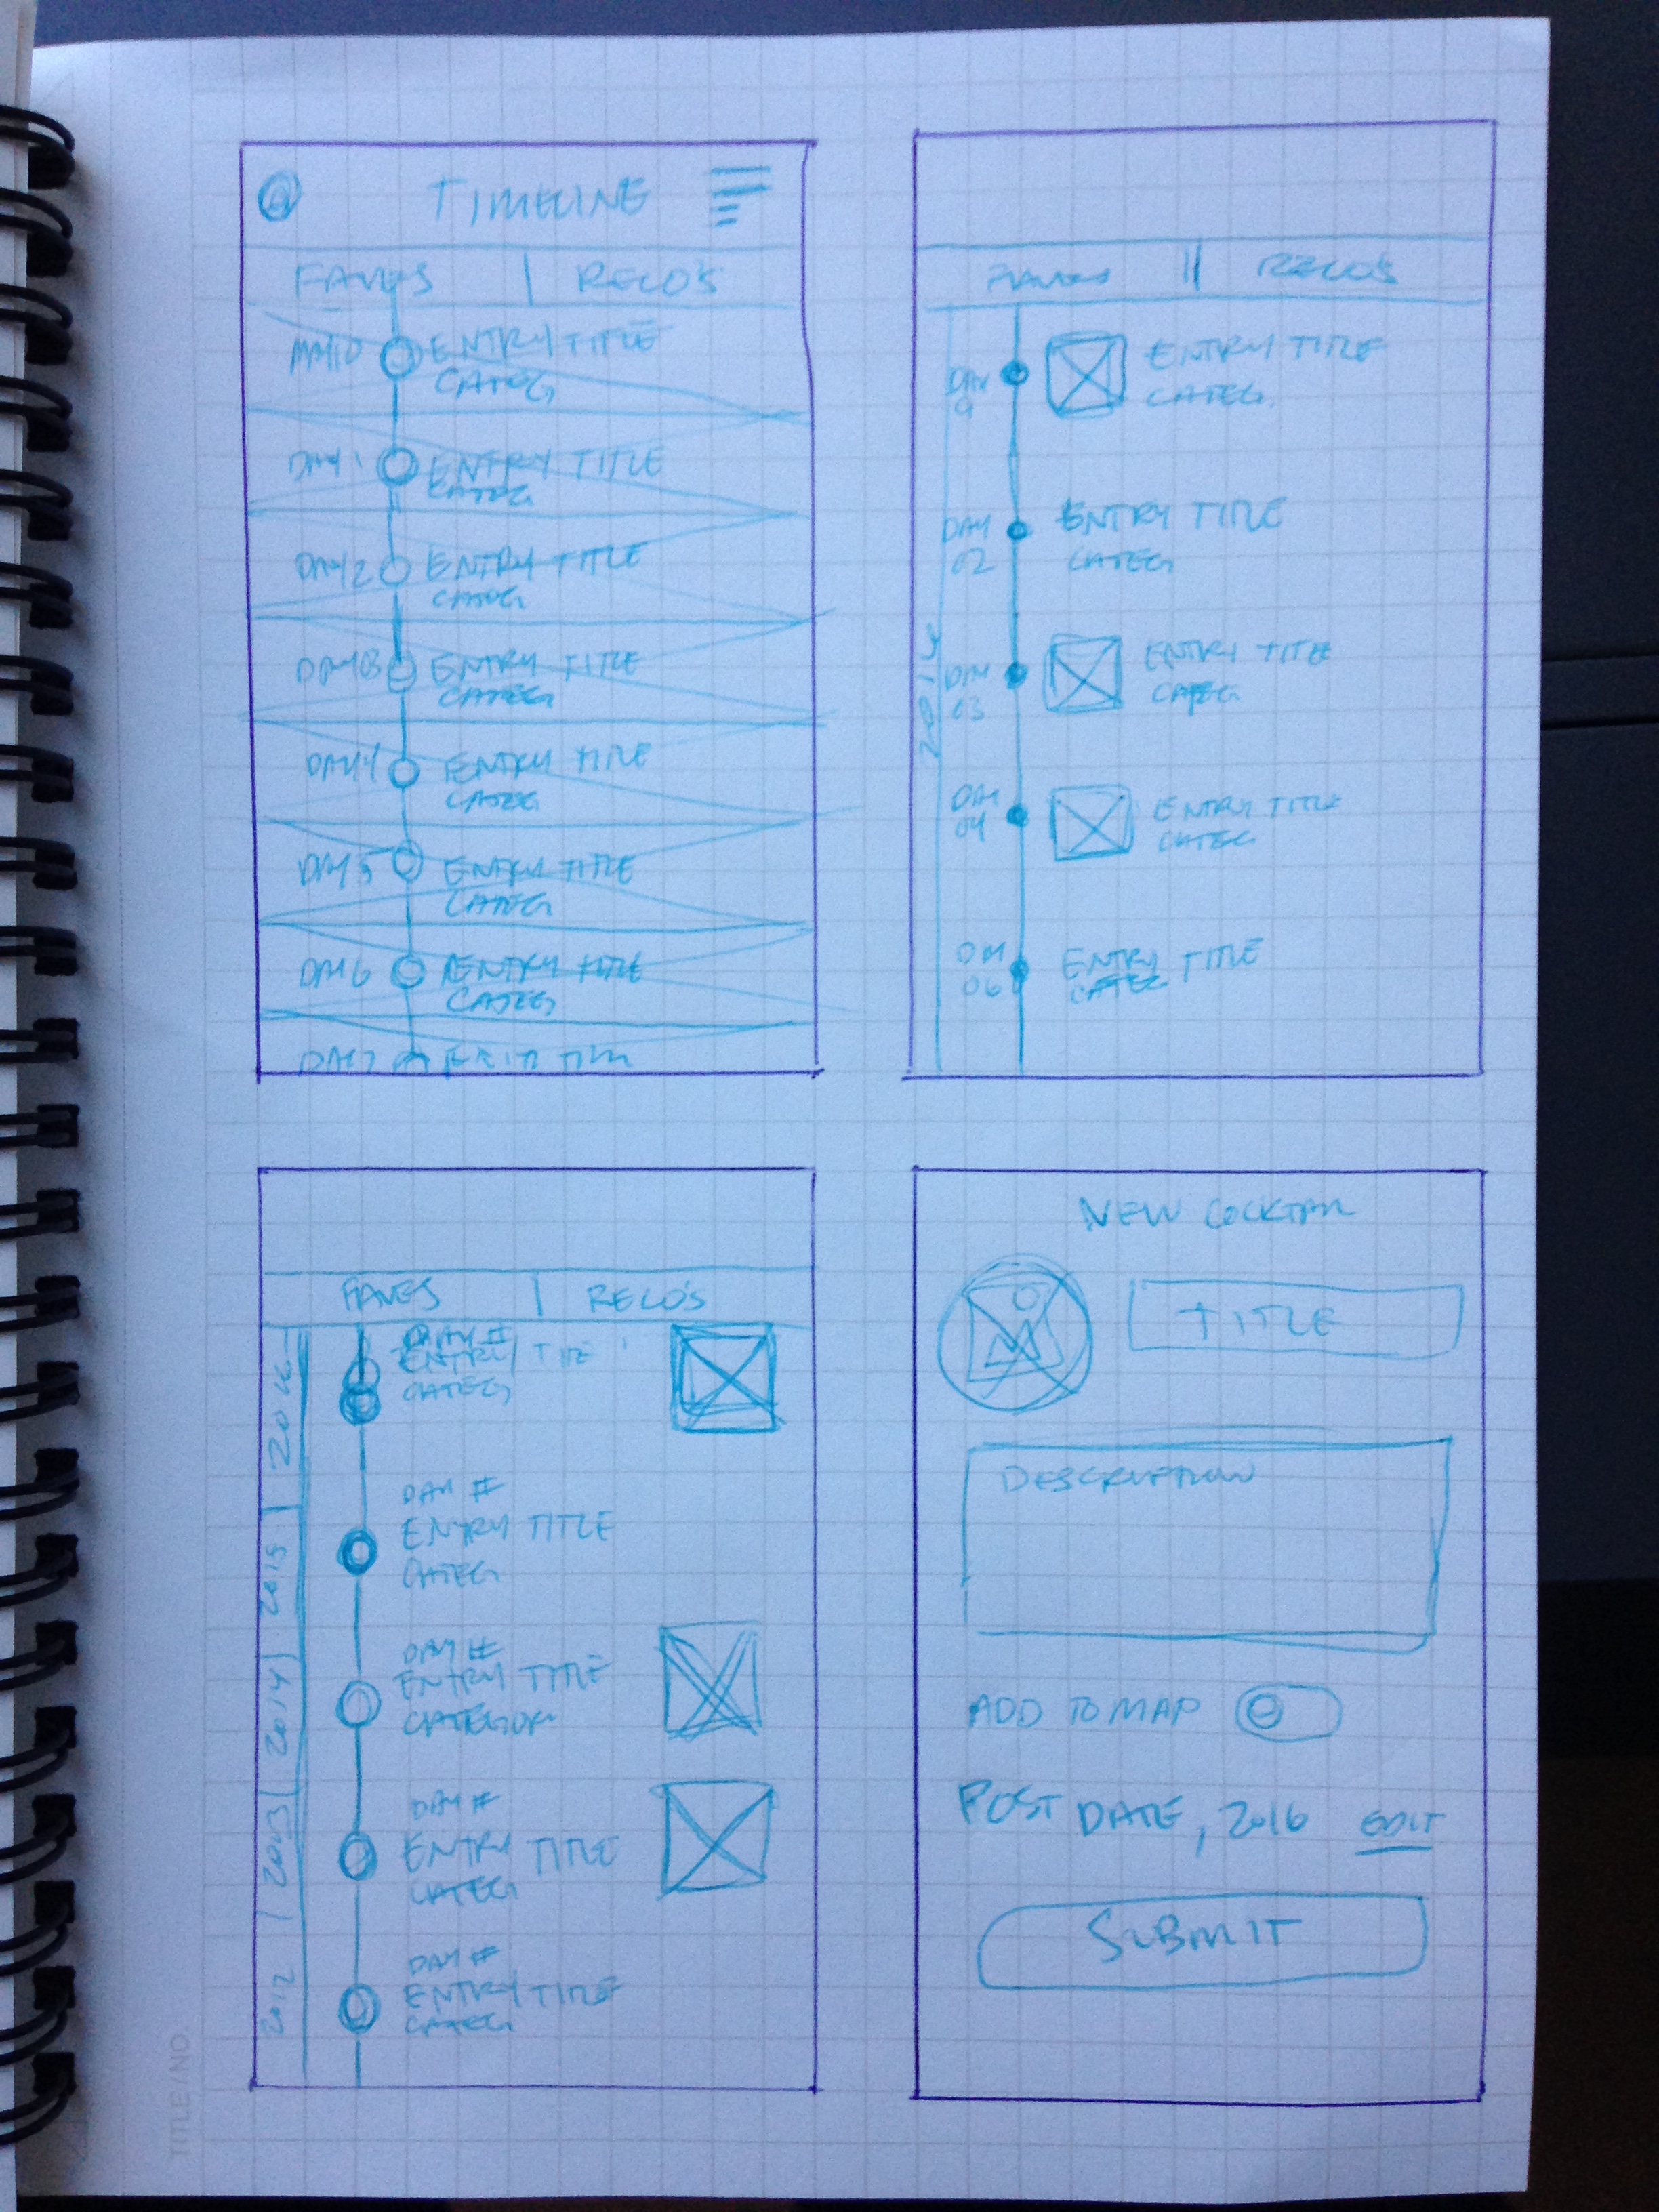 TIMELINE
FAVES | RECO'S
ENTRY TITLE
CATEG
DAY 1 ENTRY TITLE
CATEG
DAY 2 ENTRY TITLE
CATEG
DAY 03 ENTRY TITLE
CATEG
DAY 4 ENTRY TITLE
CATEG
DAY 5 ENTRY TITLE
CATEG
DAY 6 ENTRY TITLE
CATEG
DAY 7
FAVES || RECO'S
2016
DAY
9
ENTRY TITLE
CATEG.
DAY
02
ENTRY TITLE
CATEG
DAY
03
ENTRY TITLE
CATEG
DAY
04
ENTRY TITLE
CATEG
DAY
06
ENTRY TITLE
CATEG
FAVES | RECO'S
2016
2015
2014
2013
2012
DAY #
ENTRY TITLE
CATEG
DAY #
ENTRY TITLE
CATEG
DAY #
ENTRY TITLE
CATEGORY
DAY #
ENTRY TITLE
CATEG
DAY #
ENTRY TITLE
CATEG
NEW COCKTAIL
TITLE
DESCRIPTION
ADD TO MAP
POST DATE, 2016 EDIT
SUBMIT
TITLE/NO.